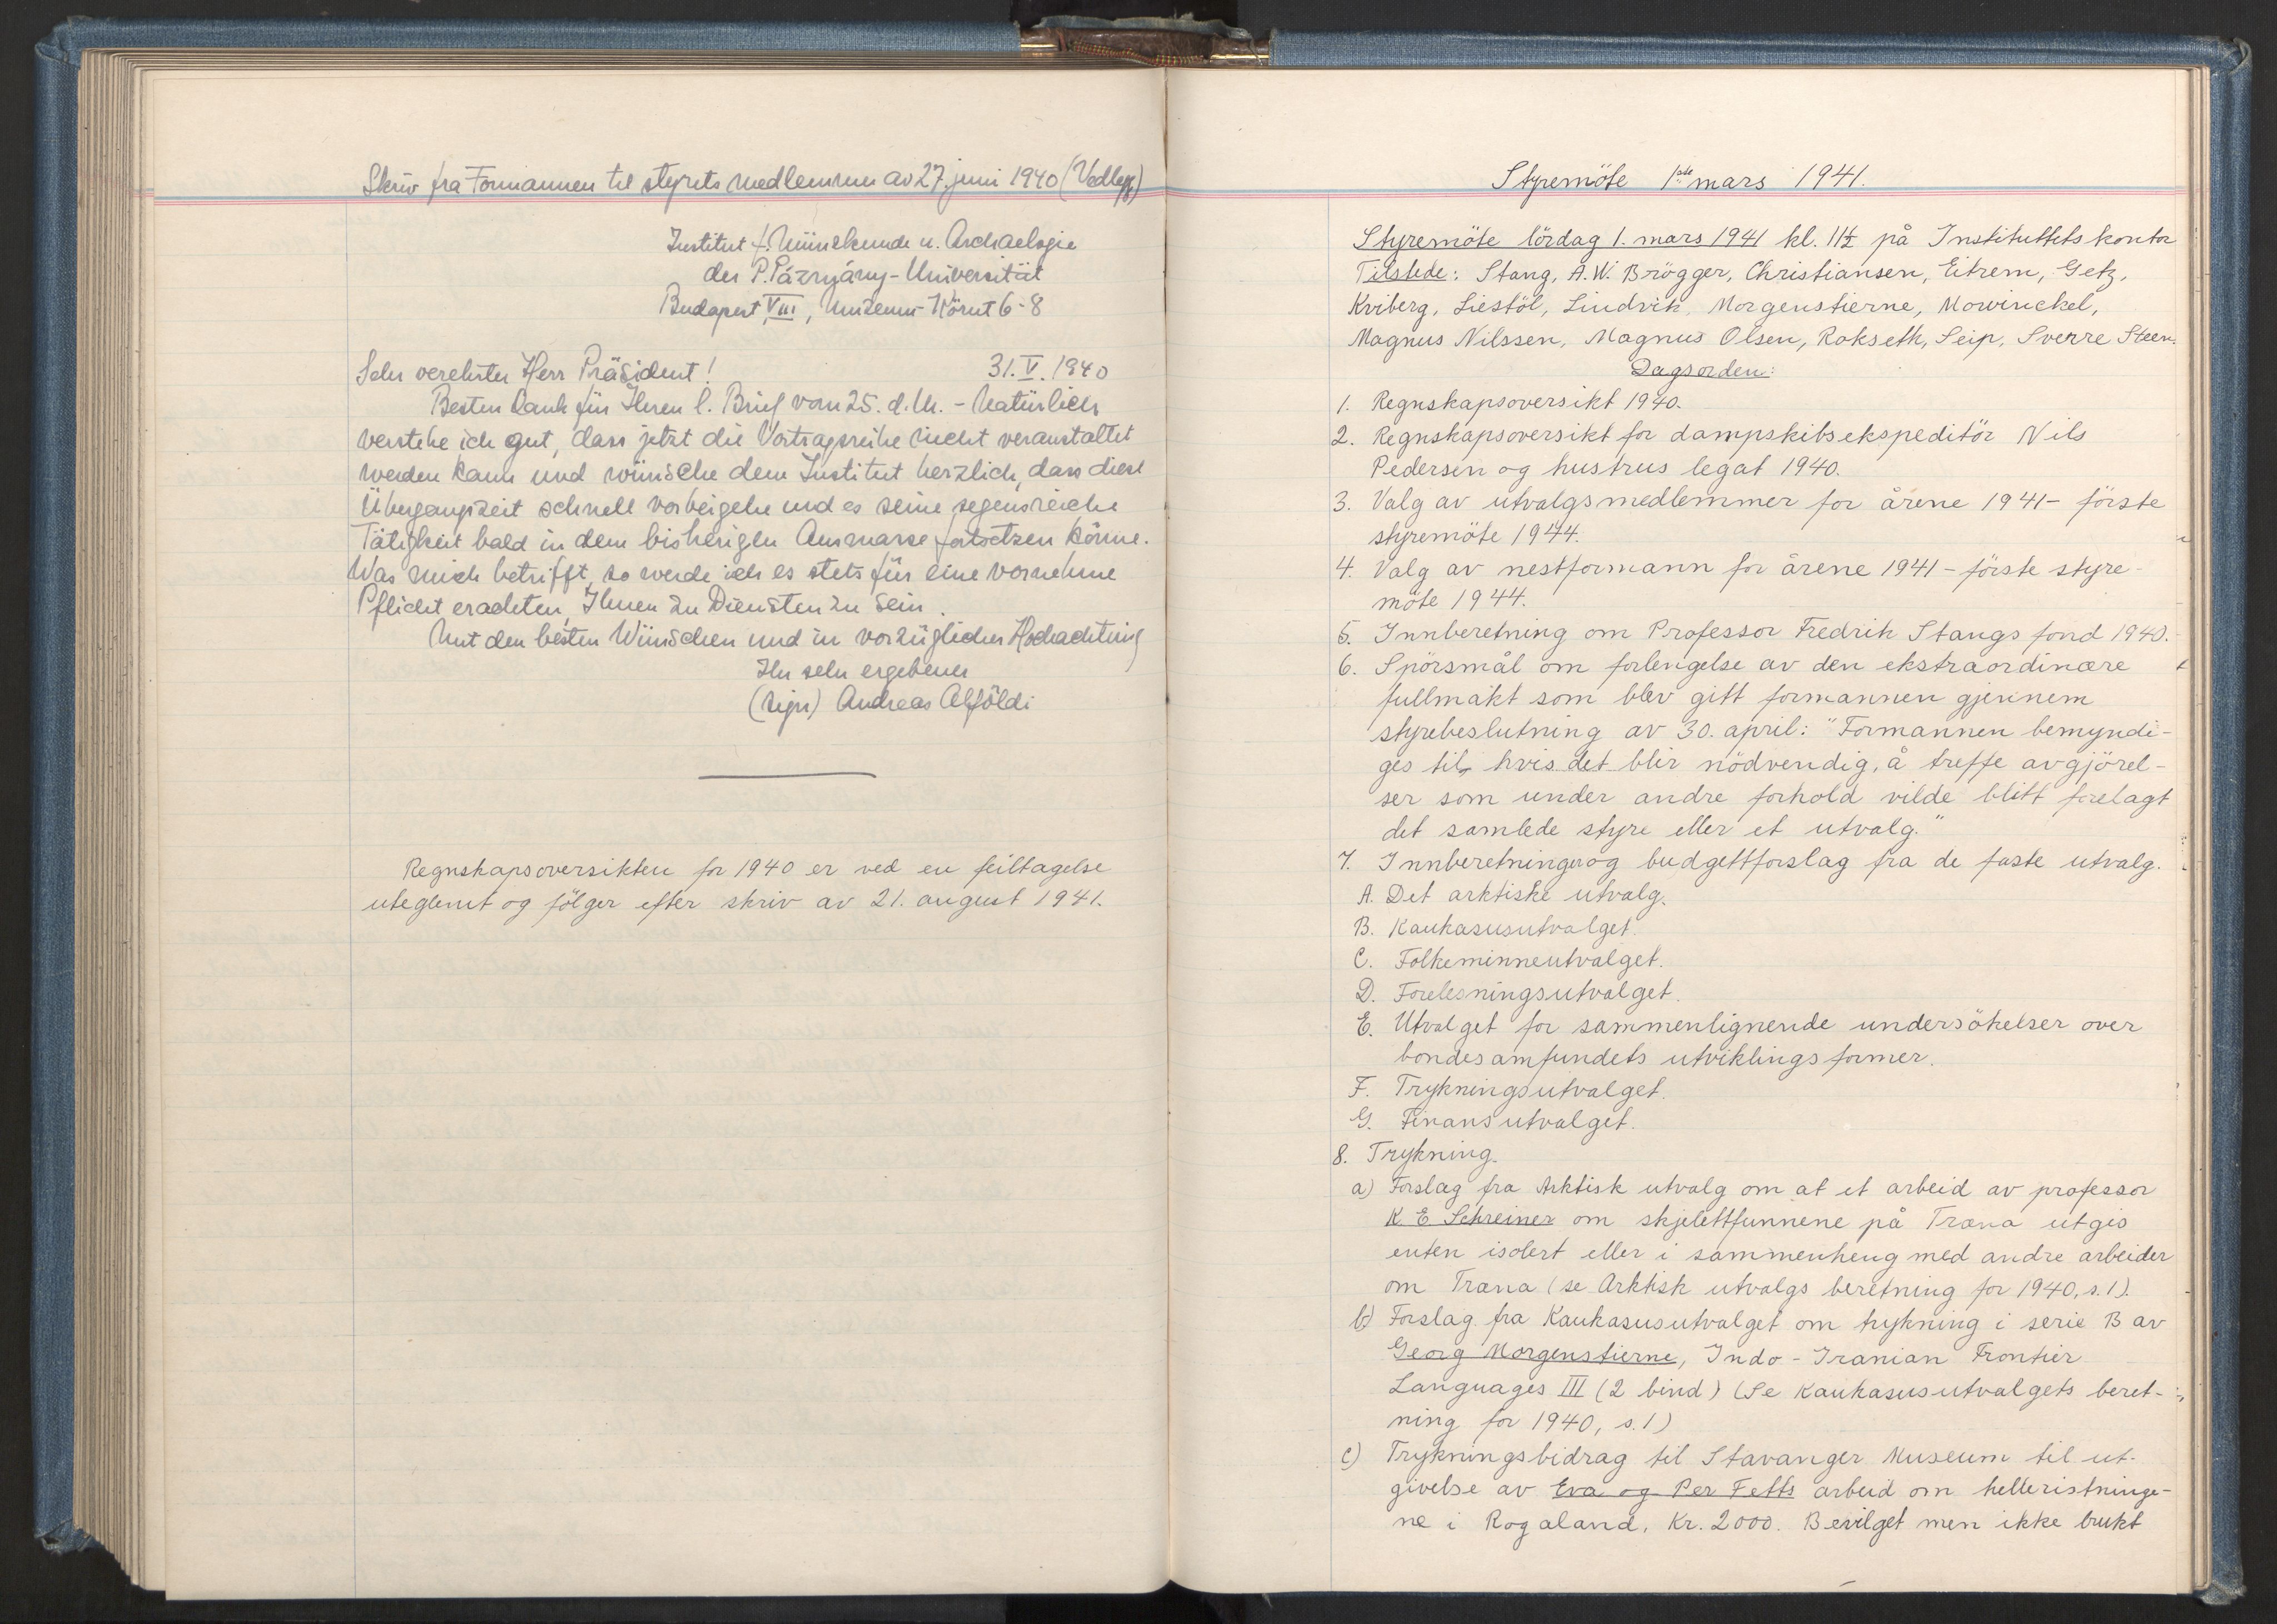 Skriv fra Formannen til styrets medlemmer av 27. juni 1940 (Vedlegg)
Institut f. Münzkunde u. Archaelogie
der P. Pázmány-Universität
Budapest VIII, Muzeum-Körut 6-8
Sehr verehrter Herr Präsident! 31. V. 1940
Besten Dank für Ihren l. Brief vom 25. d. M. - Natürlich
verstehe ich gut, dass jetzt die Vortragsreihe nicht veranstaltet
werden kann und wünsche dem Institut herzlich, dass diese
Übergangszeit schnell vorbeigehe und es seine segensreiche
Tätigkeit bald in dem bisherigen Ausmasse fortsetzen könne.
Was mich betrifft, so werde ich es stets für eine vornehme
Pflicht erachten, Ihnen zu Diensten zu sein.
Mit den besten Wünschen und in vorzüglicher Hochachtung
Ihr sehr ergebener
(sign) Andreas Alföldi
Regnskapsoversikten for 1940 er ved en feiltagelse
uteglemt og fölger efter skriv av 21. august 1941.
Styremöte 1ste mars 1941.
Styremöte lördag 1. mars 1941 kl. 11½ på Instituttets kontor
Tilstede: Stang, A. W. Brögger, Christiansen, Eitrem, Getz,
Kviberg, Liestöl, Lindvik, Morgenstierne, Mowinckel,
Magnus Nilssen, Magnus Olsen, Rokseth, Seip, Sverre Steen.
Dagsorden:
1. Regnskapsoversikt 1940.
2. Regnskapsoversikt for dampskibsekspeditör Nils
Pedersen og hustrus legat 1940.
3. Valg av utvalgsmedlemmer for årene 1941 - förste
styremöte 1944.
4. Valg av nestformann for årene 1941 - förste styre-
möte 1944.
5. Innberetning om Professor Fredrik Stangs fond 1940.
6. Spörsmål om forlengelse av den ekstraordinære
fullmakt som blev gitt formannen gjennem
styrebeslutning av 30. april: "Formannen bemyndi-
ges til, hvis det blir nödvendig, å treffe avgjörel-
ser som under andre forhold vilde blitt forelagt
det samlede styre eller et utvalg."
7. Innberetninger og budgettforslag fra de faste utvalg.
A. Det arktiske utvalg.
B. Kaukasusutvalget.
C. Folkeminneutvalget.
D. Forelesningsutvalget.
E. Utvalget for sammenlignende undersökelser over
bondesamfundets utviklingsformer.
F. Trykningsutvalget.
G. Finansutvalget.
8. Trykning.
a) Forslag fra Arktisk utvalg om at et arbeid av professor
K. E. Schreiner om skjelettfunnene på Træna utgis
enten isolert eller i sammenheng med andre arbeider
om Træna (se Arktisk utvalgs beretning for 1940, s. 1).
b) Forslag fra Kaukasusutvalget om trykning i serie B av
Georg Morgenstierne, Indo-Iranian Frontier
Languages III (2 bind) (Se Kaukasusutvalgets beret-
ning for 1940, s. 1)
c) Trykningsbidrag til Stavanger Museum til ut-
givelse av Eva og Per Fetts arbeid om helleristninge-
ne i Rogaland, Kr. 2000. Bevilget men ikke brukt